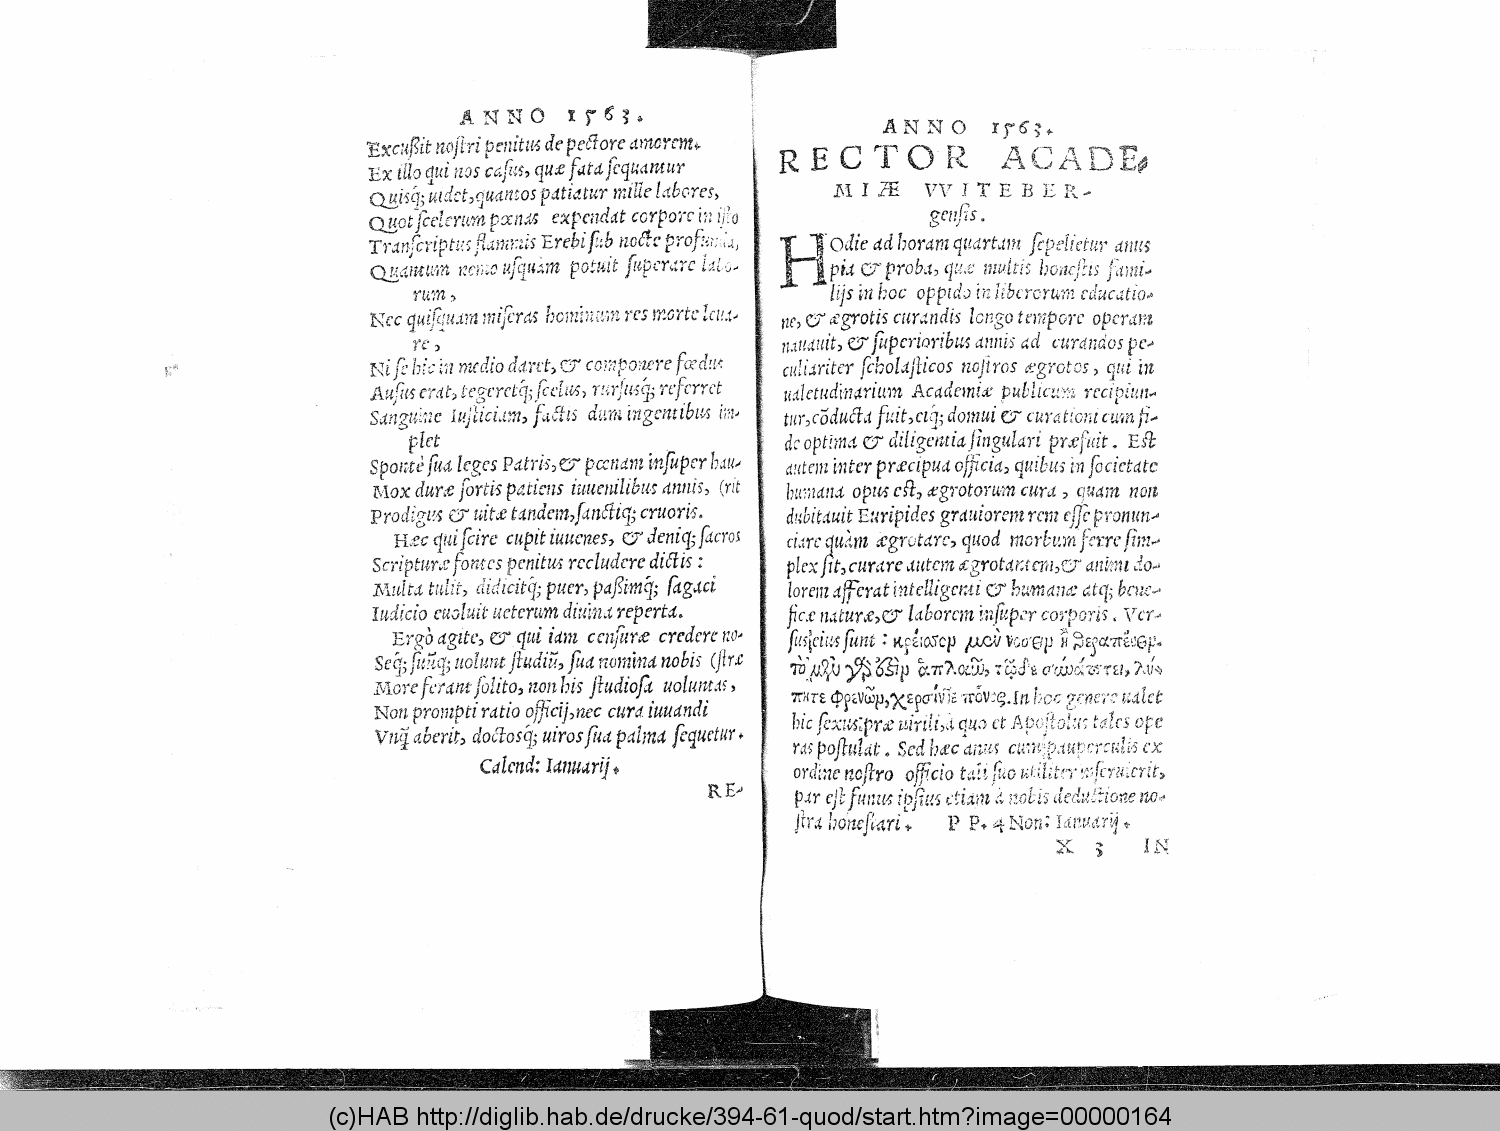 ANNO 1563.
Excußit noſtri penitus de pectore amorem.
Ex illo qui nos caſus, quæ fata ſequantur
Quisq́; uidet, quantos patiatur mille labores,
Quot ſcelerum pœnas expendat corpore in iſto
Tranſcriptus flammis Erebi ſub nocte profunda,
Quantum nemo uſquàm potuit ſuperare labo-
rum,
Nec quiſquam miſeras hominum res morte leua-
re,
Ni ſe hic in medio daret, & componere fœdus
Auſus erat, tegeretq́; ſcelus, rurſusq́; referret
Sanguine Iuſticiam, factis dum ingentibus im-
plet
Spontè ſua leges Patris, & pœnam inſuper hau-
Mox duræ ſortis patiens iuuenilibus annis, (rit
Prodigus & uitæ tandem, ſanctiq; cruoris.
Hæc qui ſcire cupit iuuenes, & deniq; ſacros
Scripturæ fontes penitus recludere dictis:
Multa tulit, didicitq́; puer, paßimq́; ſagaci
Iudicio euoluit ueterum diuina reperta.
Ergò agite, & qui iam cenſuræ credere no-
Seq́; ſuũq; uolunt ſtudiũ, ſua nomina nobis (ſtræ
More ferant ſolito, non his ſtudioſa uoluntas,
Non prompti ratio officij, nec cura iuuandi
Vnq̃ aberit, doctosq́; uiros ſua palma ſequetur.
Calend: Ianuarij.
RE-
ANNO 1563.
RECTOR ACADE-
MIÆ VVITEBER-
genſis.
HOdie ad horam quartam ſepelietur anus
pia & proba, quæ multis honeſtis fami-
lijs in hoc oppido in liberorum educatio-
ne, & ægrotis curandis longo tempore operam
nauauit, & ſuperioribus annis ad curandos pe-
culiariter ſcholaſticos noſtros ægrotos, qui in
ualetudinarium Academiæ publicum recipiun-
tur, cõducta fuit, eiq́; domui & curationi cum fi-
de optima & diligentia ſingulari præfuit. Eſt
autem inter præcipua officia, quibus in ſocietate
humana opus eſt, ægrotorum cura, quam non
dubitauit Euripides grauiorem rem eſſe pronun-
ciare quàm ægrotare, quod morbum ferre ſim-
plex ſit, curare autem ægrotantem, & animi do-
lorem afferat intelligenti & humanæ atq; bene-
ficæ naturæ, & laborem inſuper corporis. Ver-
ſus eius ſunt: κρείσσον μὲν νοσεῖν ἢ θεραπεύειν.
τὸ μὲν γάρ ἐστιν ἁπλοῦν, τῷδε συνάπτει, λύ-
πητε φρενῶν, χερσίντε πόνος. In hoc genere ualet
hic ſexus præ uirili, à quo et Apoſtolus tales ope
ras poſtulat. Sed hæc anus cum pauperculis ex
ordine noſtro officio tali ſuo utiliter inſeruierit,
par eſt funus ipſius etiam à nobis deductione no-
ſtra honeſtari. P P. 4 Non: Ianuarij.
X 3 IN
(c)HAB http://diglib.hab.de/drucke/394-61-quod/start.htm?image=00000164